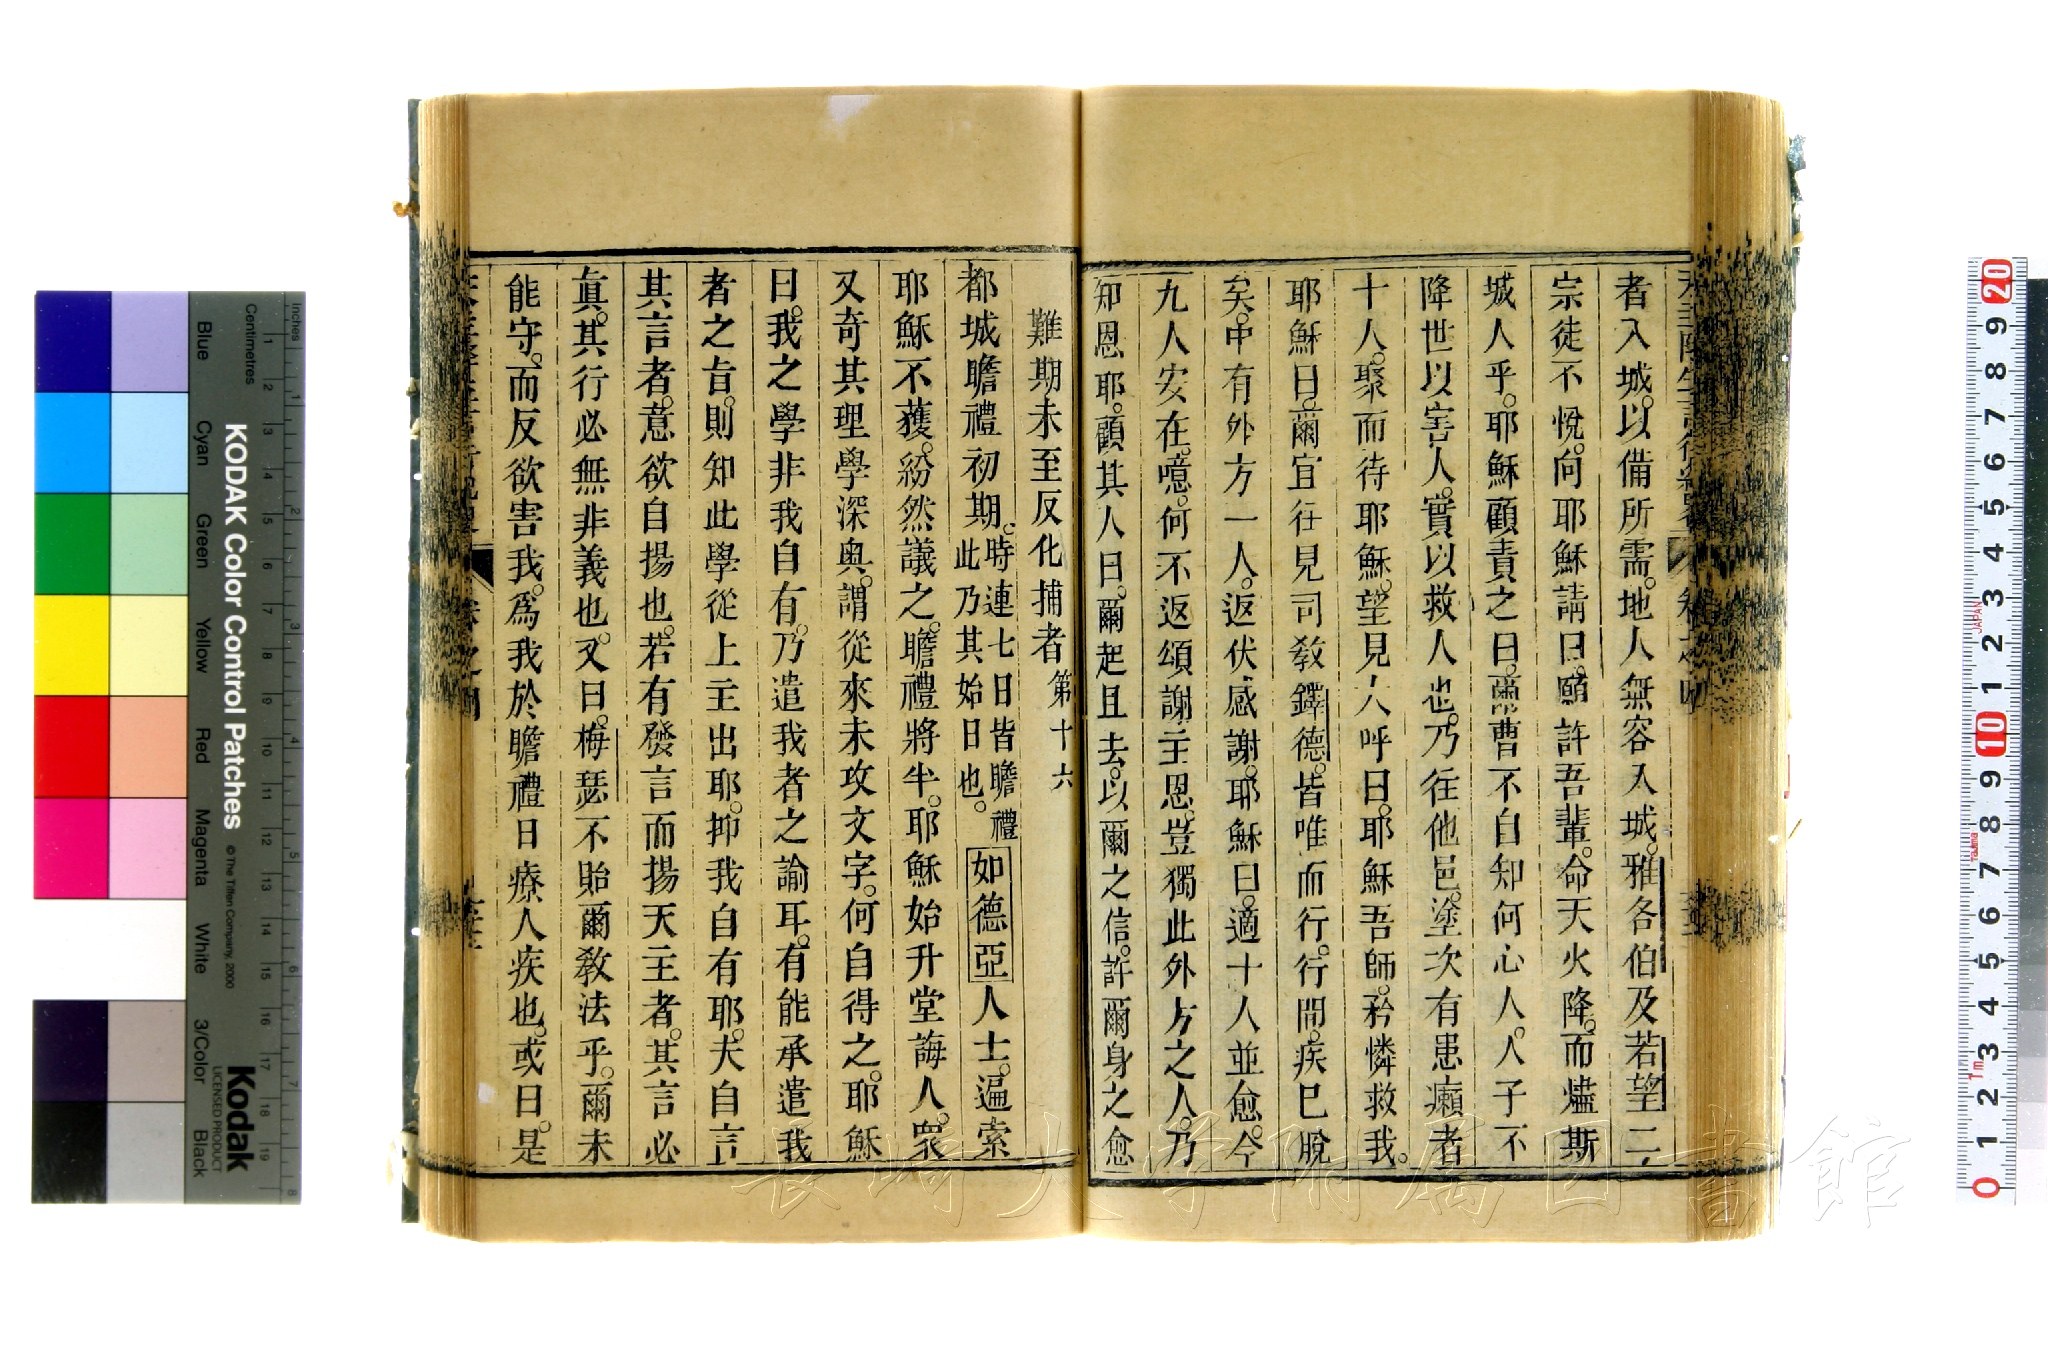 者入城。以備所需。地人無容入城。雅各伯及若望二
宗徒不悅。向耶穌請曰。願許吾輩。命天火降。而燼斯
城人乎。耶穌顧責之曰。爾曹不自知何心人。人子不
降世以害人。實以救人也。乃往他邑。塗次有患癩者
十人。聚而待耶穌。望見大呼曰。耶穌吾師。矜憐救我。
耶穌曰。爾宜往見司敎鐸德。皆唯而行。行間。疾巳脫
矣。中有外方一人。返伏感謝。耶穌曰。適十人並愈。今
九人安在。噫。何不返頌謝主恩。豈獨此外方之人。乃
知恩耶。顧其人曰。爾起且去。以爾之信。許爾身之愈
難期未至反化捕者 第十六
都城瞻禮初期。時連七日皆瞻禮此乃其始日也。如德亞人士。遍索
耶穌不獲。紛然議之。瞻禮將半。耶穌始升堂誨人。衆
又奇其理學深奥。謂從來未攻文字。何自得之。耶穌
曰。我之學非我自有。乃遣我者之諭耳。有能承遣我
者之旨。則知此學從上主出耶。抑我自有耶。夫自言
其言者。意欲自揚也。若有發言而揚天主者。其言必
眞。其行必無非義也。又曰。梅瑟不貽爾敎法乎。爾未
能守。而反欲害我。爲我於瞻禮日療人疾也。或曰。是
卷之四
KODAK Color Control Patches
© The Tiffen Company, 2000
Kodak
LICENSED PRODUCT
Inches
Centimetres
Blue
Cyan
Green
Yellow
Red
Magenta
White
3/Color
Black
長崎大学附属図書館